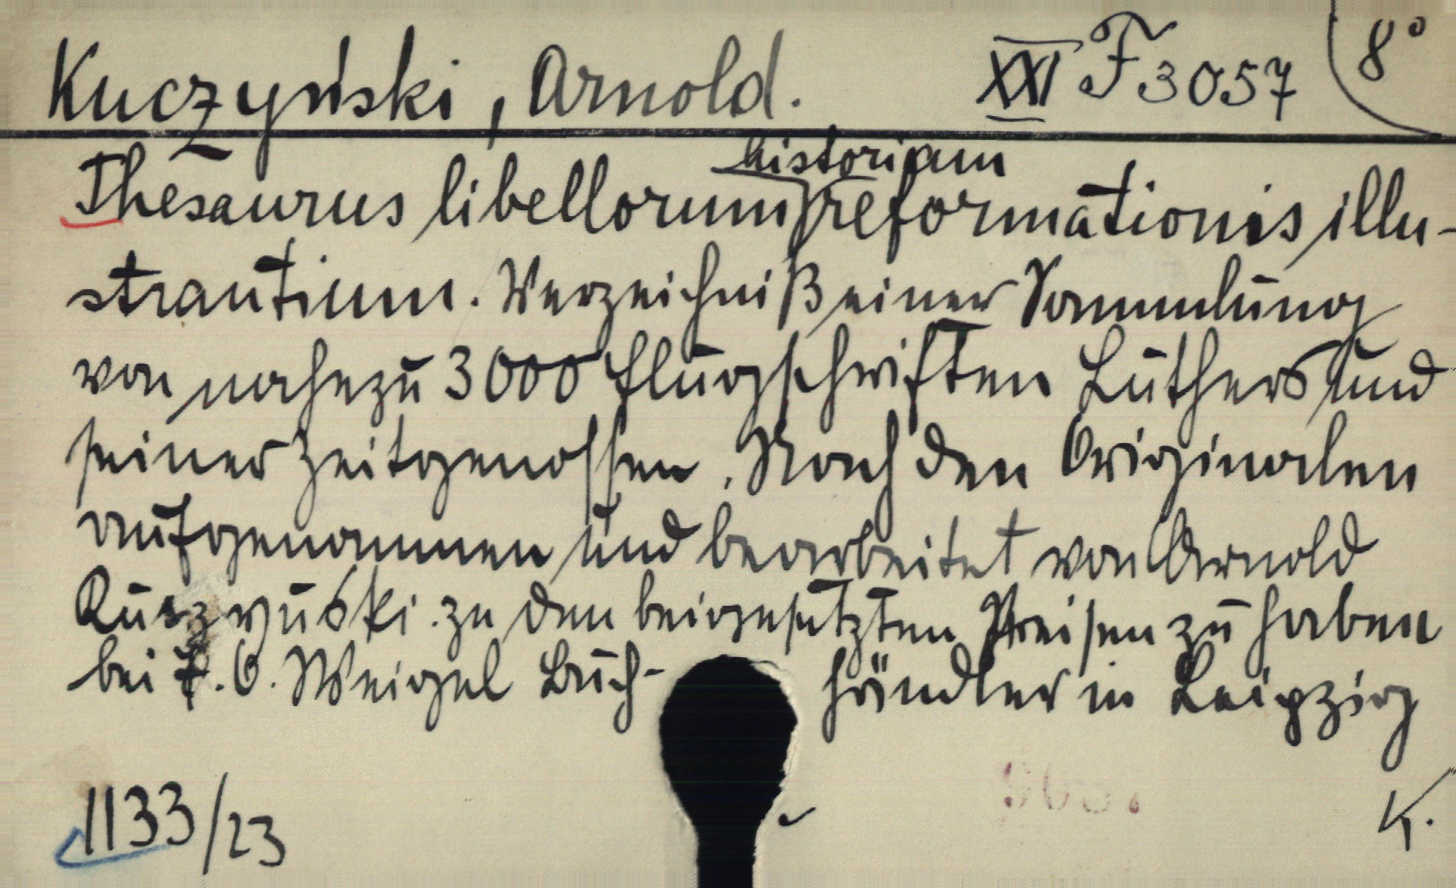 Kuczyński, Arnold. XXI F 3057 8°
Thesaurus libellorum historiam reformationis illu-
strantium. Verzeichniß einer Sammlung
von nahezu 3000 Flugschriften Luthers und
seiner Zeitgenossen. Nach den Originalen
aufgenommen und bearbeitet von Arnold
Kuczyński. zu den beigesetzten Preisen zu haben
bei T. O. Weigel Buch- händler in Leipzig
1133/23
K.